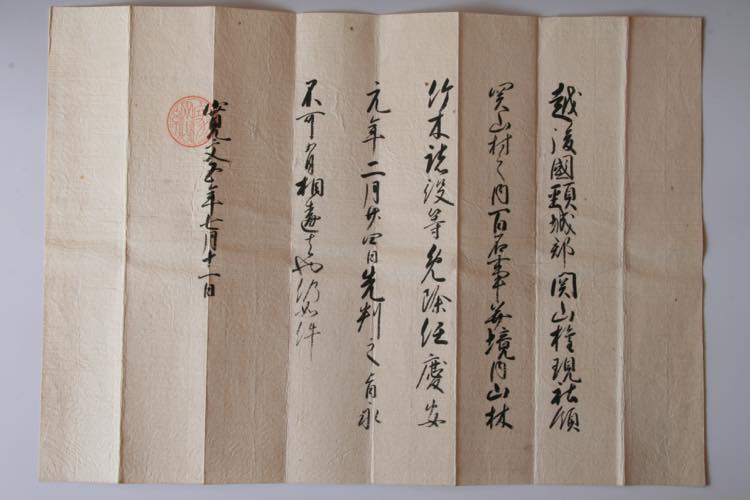 越後國頸城郡関山権現社領
関山村之内百石事并境内山林
竹木諸役等免除任慶安
元年二月廿四日先判之旨永
不可有相違者也仍如件
寛文五年七月十一日